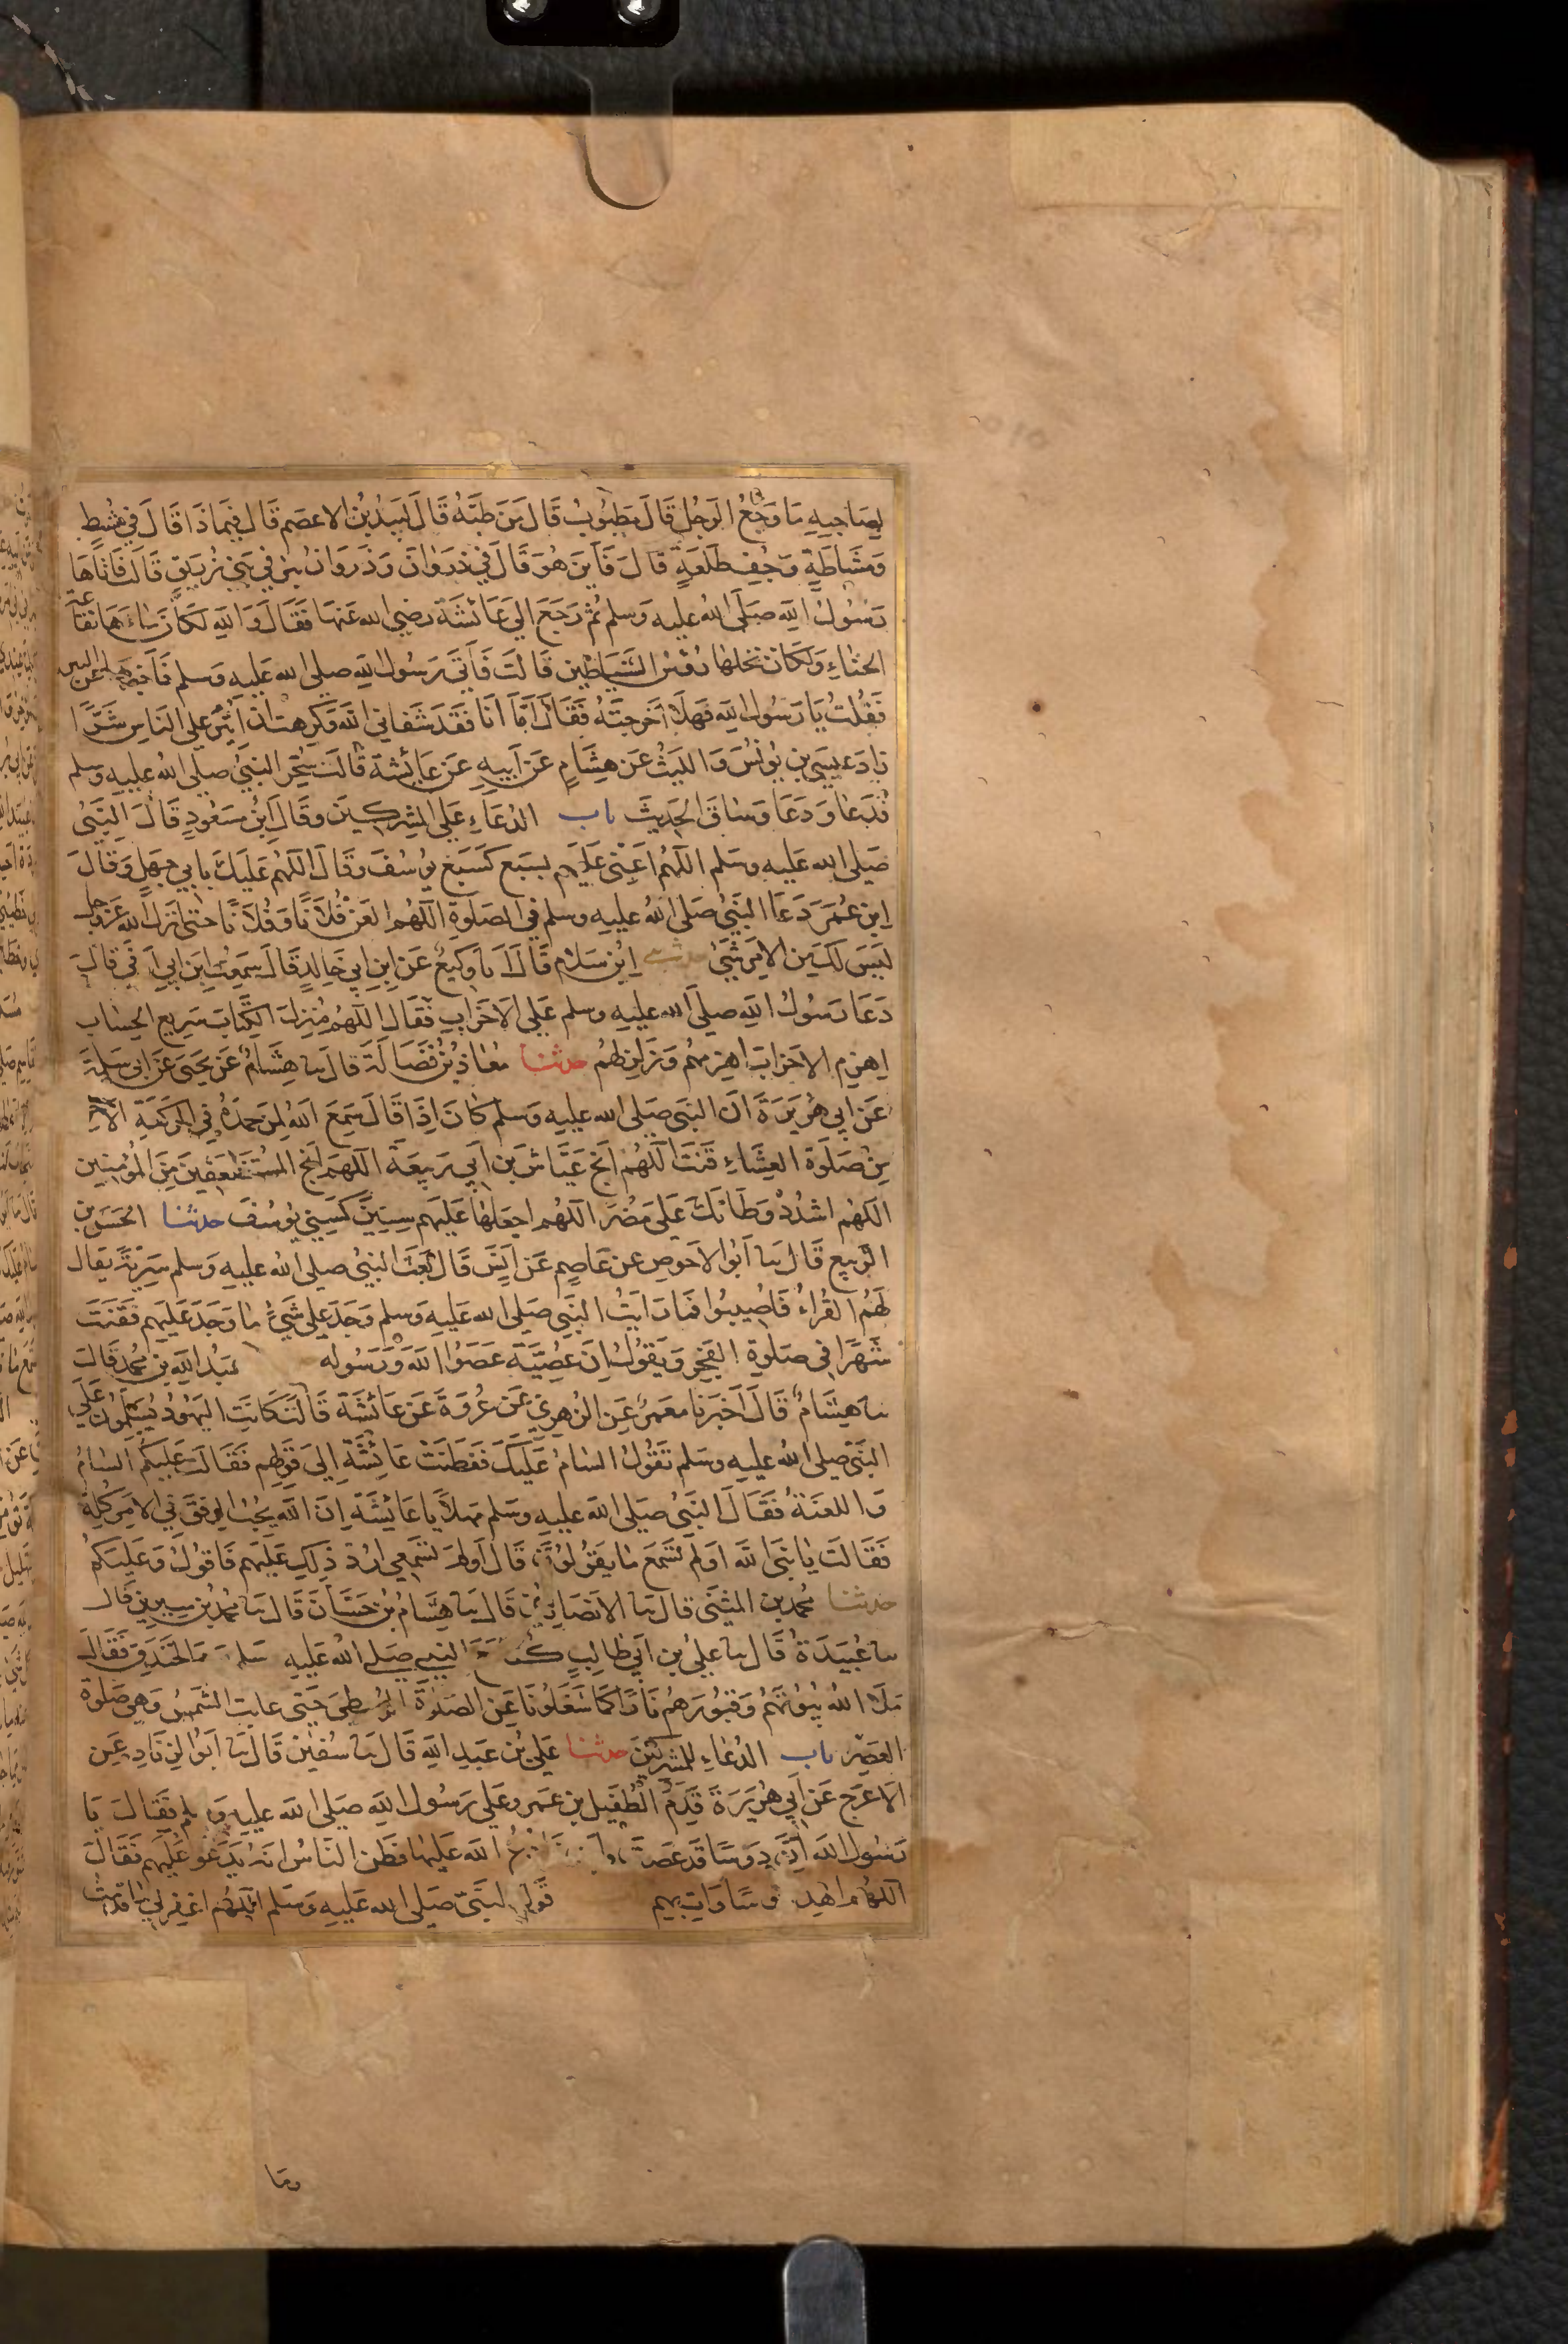 لِصَاحِبِهِ مَا وَجَعُ الرَجُلِ قَالَ مَطبُوبٌ قَالَ مَن طَبَّهُ قَالَ لَبِيدُ بْنُ الاعصَمِ قَالَ فِيمَا ذَا قَالَ في مُشطٍ
وَمُشَاطَةٍ وَجُفِّ طَلعَةٍ قَالَ فَأَينَ هُوَ قَالَ في ذروَانَ وَذَروَانُ بئر في بَنِي زُرَيقٍ قَالَت فَاتَاهَا
رَسُولُ اللهِ صَلَّى اللهُ عليه وَسلم ثُم رَجَعَ الى عَائشَةَ رضي الله عنها فَقَالَ وَاللهِ لَكَانَّ مَاءَهَا نُقَاعَةُ
الحناءِ ولَكَانَّ نخلها رُؤسُ الشَيَاطين قَالَت فَأَتَى رَسُول اللهِ صلى الله عَليهِ وَسلم فَأَخبَرَهَا عن البير
فَقُلتُ يَا رَسُول اللهِ فَهَلا أَخرَجتَهُ فَقَالَ أَمَّا أَنَا فَقَد شَفاني اللهُ وَكرهت ان اُثير على النَاسِ شَرًّا
زادَ عيسى بن يُونُسَ وَالليثُ عَن هِشَامٍ عَن أَبِيهِ عَن عَائشة قَالَت سُحِرَ النبيُّ صلى الله عليهِ وسلم
فَدَعَا وَدَعَا وَسَاقَ الحَديثَ باب الدُعَاءِ عَلى المُشركِينَ وقَالَ ابنُ مسعُودٍ قَالَ النَبيُّ
صَلى الله عَليهِ وسَلم اللهُم اَعِنِّى عَلَيهِم بسَبعٍ كَسَبعِ يوُسُفَ وقَالَ اللهُم عَليكَ بابي جهلٍ وَقالَ
ابن عُمَرَ دَعَا النَبيُّ صَلى اللهُ عليهِ وسلم في الصَلوةِ اللهُم العَن فُلاَنًا وَفُلاَنًا حتى اَنزَلَ الله عَزوجل
لَيسَ لَكَ مِن الامرِ شَيٌ حدثنى ابن سَلام قَالَ نا وَكيعٌ عَن ابن ابي خَالدٍ قَالَ سَمِعتُ ابنَ ابي اَوفي قال
دَعَا رَسُولُ اللهِ صلى الله عليهِ وسلم عَلى الاَحزابِ فَقَال اللهُم مُنزِلَ الكِتَابَ سَرِيعَ الحِسَابِ
اهزِمِ الاحزابَ اهزمهُم وَزَلزِلهُم حدثنا مُعَاذ بنُ فَضَالَةَ قال نا هِشَامٌ عَن يَحيىَ عَن ابي سَلمةَ
عَن ابي هُرَيرَةَ اَن النَبيَ صَلى الله عليهِ وَسلم كَانَ اِذَا قَالَ سَمِعَ اللهُ لِمَن حَمدَهُ في الرَكعَةِ الاخِرَ
مِن صَلَوة العِشَاءِ قَنَتَ اللهُم انج عَيَّاش بَن ابي رَبيعَة اللهُم انج المستَضعَفِينَ مِنَ المُؤمنِين
اللهُم اشدُد وَطَاتَكَ عَلىَ مُضَرَ اللهُم اجعَلهَا عَليهِم سِنينَ كَسِني يوُسُفَ حدثنا الحَسَن بن
الرَبيع قَال نا اَبُو الاحوصِ عن عَاصِم عَن اَنسٍ قَالَ بَعَثَ النبيُ صلى الله عليهِ وَسلم سَرِيَّةً يقَال
لَهُمُ القُرَاءُ فَاُصِيبُوا فمَا رَاَيتُ النَبِيَ صَلى الله عَليهِ وَسلم وَجَدَ على شَيءٍ مَا وَجَدَ عَليهِم فَقَنَتَ
شَهرًا في صَلوةِ الفَجرِ وَيَقُولُ اِنَّ عُصَيَّةَ عَصَوُا اللهَ وَرَسُوله عَبدُ اللهِ بن مُحمد قالَ
نا هِشَامٌ قَالَ اَخبَرَنا مَعمَرٌ عَنِ الزُهرِيّ عَن عُروَةَ عَن عَائشَةَ قَالَت كَانَت اليَهُودُ يُسَلمُونَ عَلَى
النَبيّ صلى الله عليهِ وسَلم تَقوُلُ السَامُ عَليكَ فَفَطَنَت عَائِشَةَ إلى قَولِهِم فَقَالَت عَليكمُ السَامُ
وَاللعنَةُ فَقَالَ النَبيُ صَلى الله عليهِ وسلم مَهلاً يا عَائشَةَ اِنَّ اللهَ يحِبُ الرِفقَ في الامرِ كلِهِ
فَقَالَت يَا نَبيَ الله اَوَلَم تسَمع مَا يَقُولُونَ قَالَ اَولَم تسَمعِي ارُدُّ ذَلِكِ عَليهِم فَاقوُلُ وَعَليكُم
حدثنا مُحمد بن المثنَى قالَ نا الانصَارِيُّ قَالَ نا هِشَامُ بن حَسَّانَ قَالَ نا مُحمَدُ بن سِيرينَ قَالَ
نا عُبَيدَةُ قَالَ نا عَلِيُ بن اَبي طَالِبٍ كُنا مَعَ النَبي صَلى اللهُ عَليهِ سَلم الخَندَقِ فَقَالَ
مَلَأ اللهُ بُيُوتَهُم وَقبُورَهُم نَارًا كمَا شَغَلُونَا عَنِ الصَلوٰةِ الوُسطَى حَتَى غابت الشَمسُ وهي صَلوة
العَصرِ باب الدُعَاءِ للمُشركينَ حدثنا عَلي بن عَبدِ اللهِ قَالَ نا سُفين قَالَ نا اَبُوا الزِنَادِ عَن
الاعرَجِ عَن اَبي هُرَيرَةَ قَدِمَ الطُفَيلُ بن عَمروٍ عَلى رَسُول اللهِ صَلى الله عليهِ وَسلم فَقَالَ يَا
رَسُول الله اِنَّ دَوسًا قَد عَصَت الله عَليهَا فَظَن النَاسُ انَهُ يَدعُو عَليهِم فَقَالَ
اللهُم اهدِ دوسًا وَاتِ بهِم قَولُ النَبيّ صَلى الله عَليهِ وَسلم اللهُم اغفِر لي مَا قَدَمتُ
ومَا